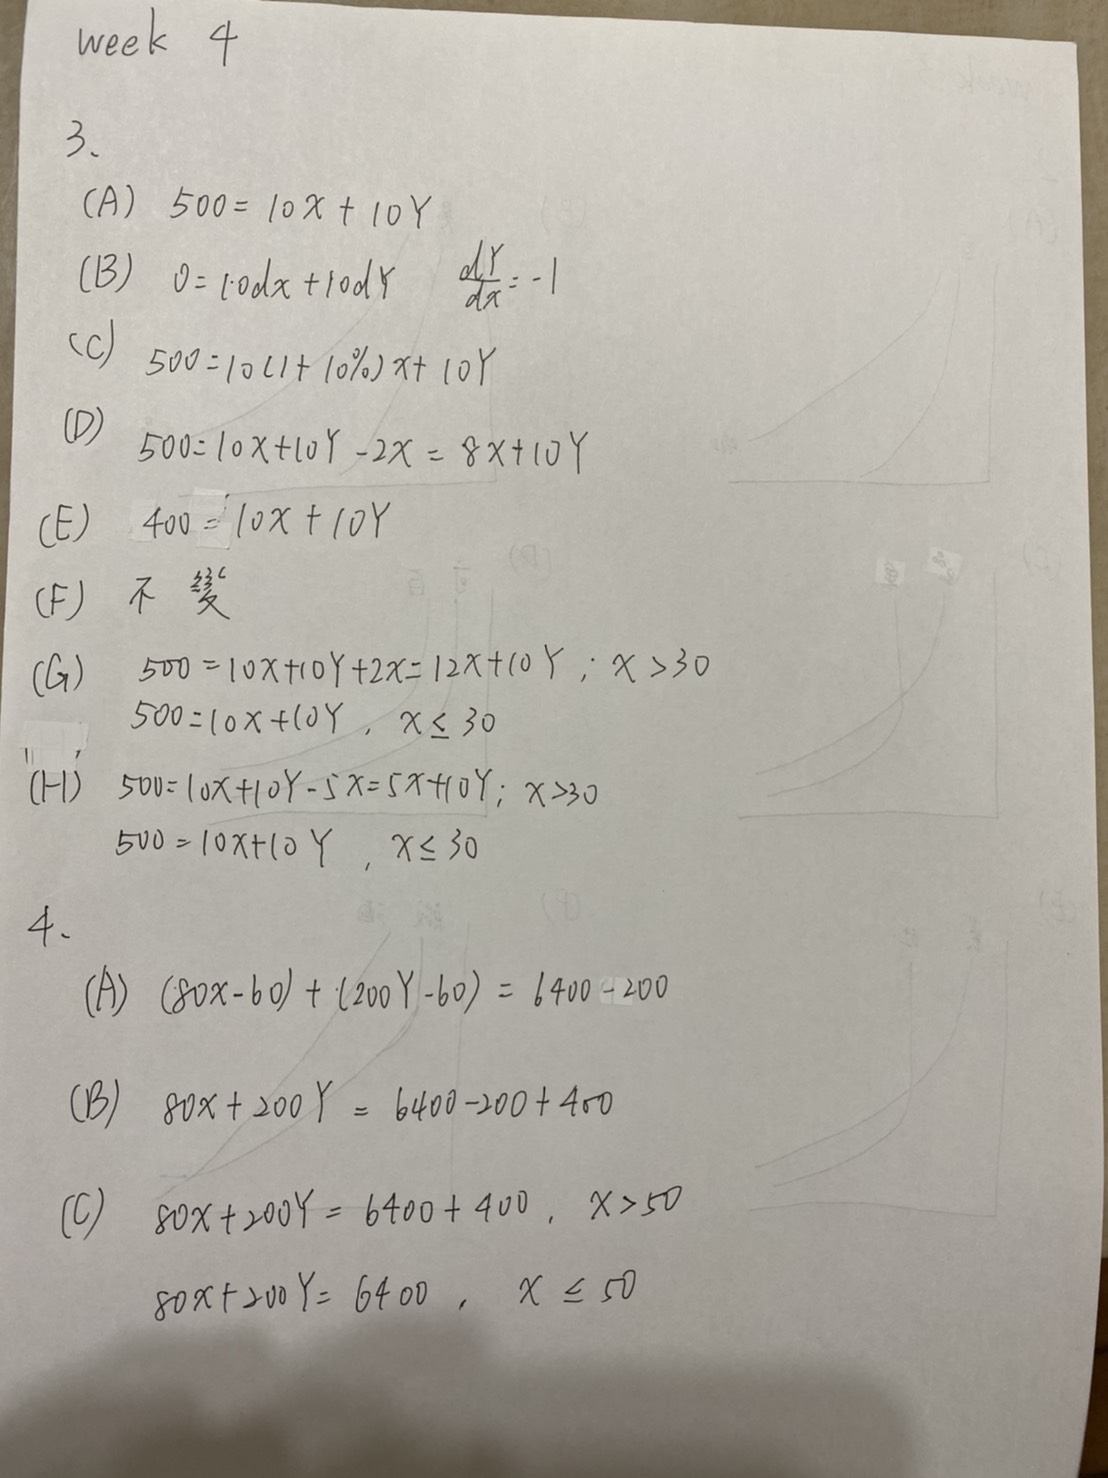 week 4
3、
(A) 500 = 10X + 10Y
(B) 0 = 10dx + 10dY dY/dx = -1
(C) 500 = 10(1 + 10%)x + 10Y
(D) 500 = 10X + 10Y - 2X = 8X + 10Y
(E) 400 = 10X + 10Y
(F) 不變
(G) 500 = 10X + 10Y + 2X = 12X + 10Y ; X > 30
500 = 10X + 10Y , X ≤ 30
(H) 500 = 10X + 10Y - 5X = 5X + 10Y ; X > 30
500 = 10X + 10Y , X ≤ 30
4、
(A) (80X - 60) + (200Y - 60) = 6400 - 200
(B) 80X + 200Y = 6400 - 200 + 400
(C) 80X + 200Y = 6400 + 400 , X > 50
80X + 200Y = 6400 , X ≤ 50